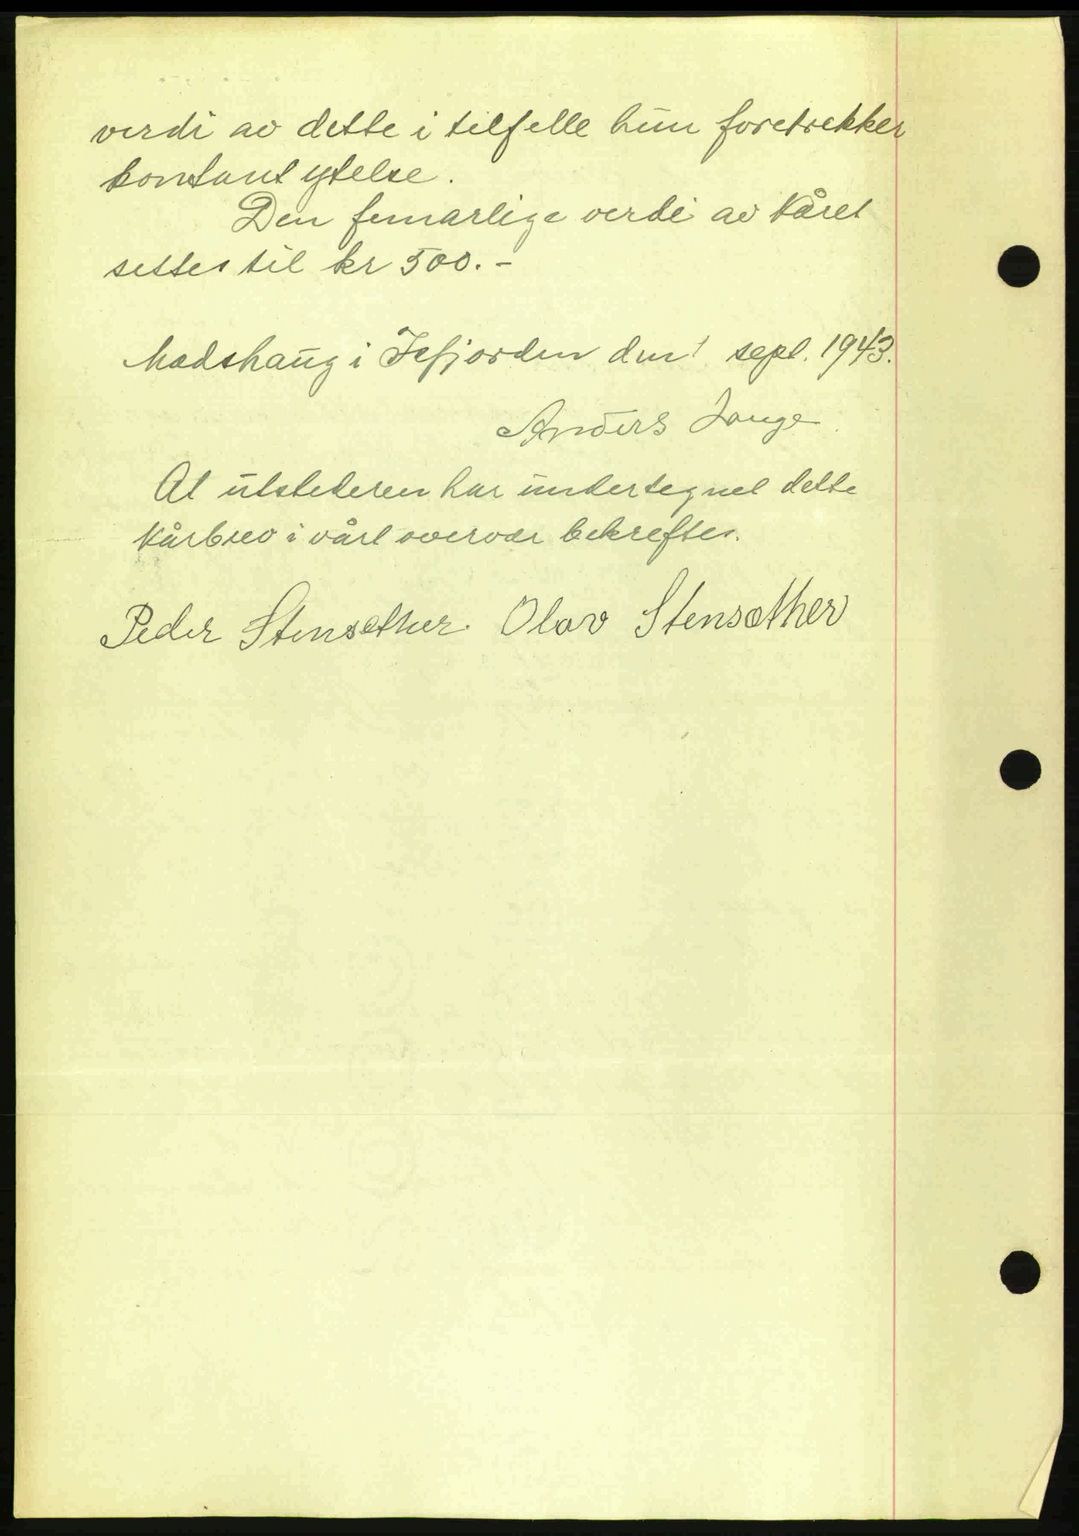 verdi av dette i tilfelle hun foretrekker
kontant ytelse.
Den femårlige verdi av kåret
settes til kr 500.-
Madshaug i Isfjorden den 1 sept. 1943.
Anders Lange
At utstederen har undertegnet dette
kårbrev i vårt overvær bekreftes.
Peder Stensæther. Olav Stensæther